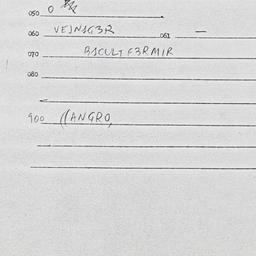 050 O
060 VEJNSG3R 061 —
070 BSCULTF3RMIR
080
900 ((ANGRO,